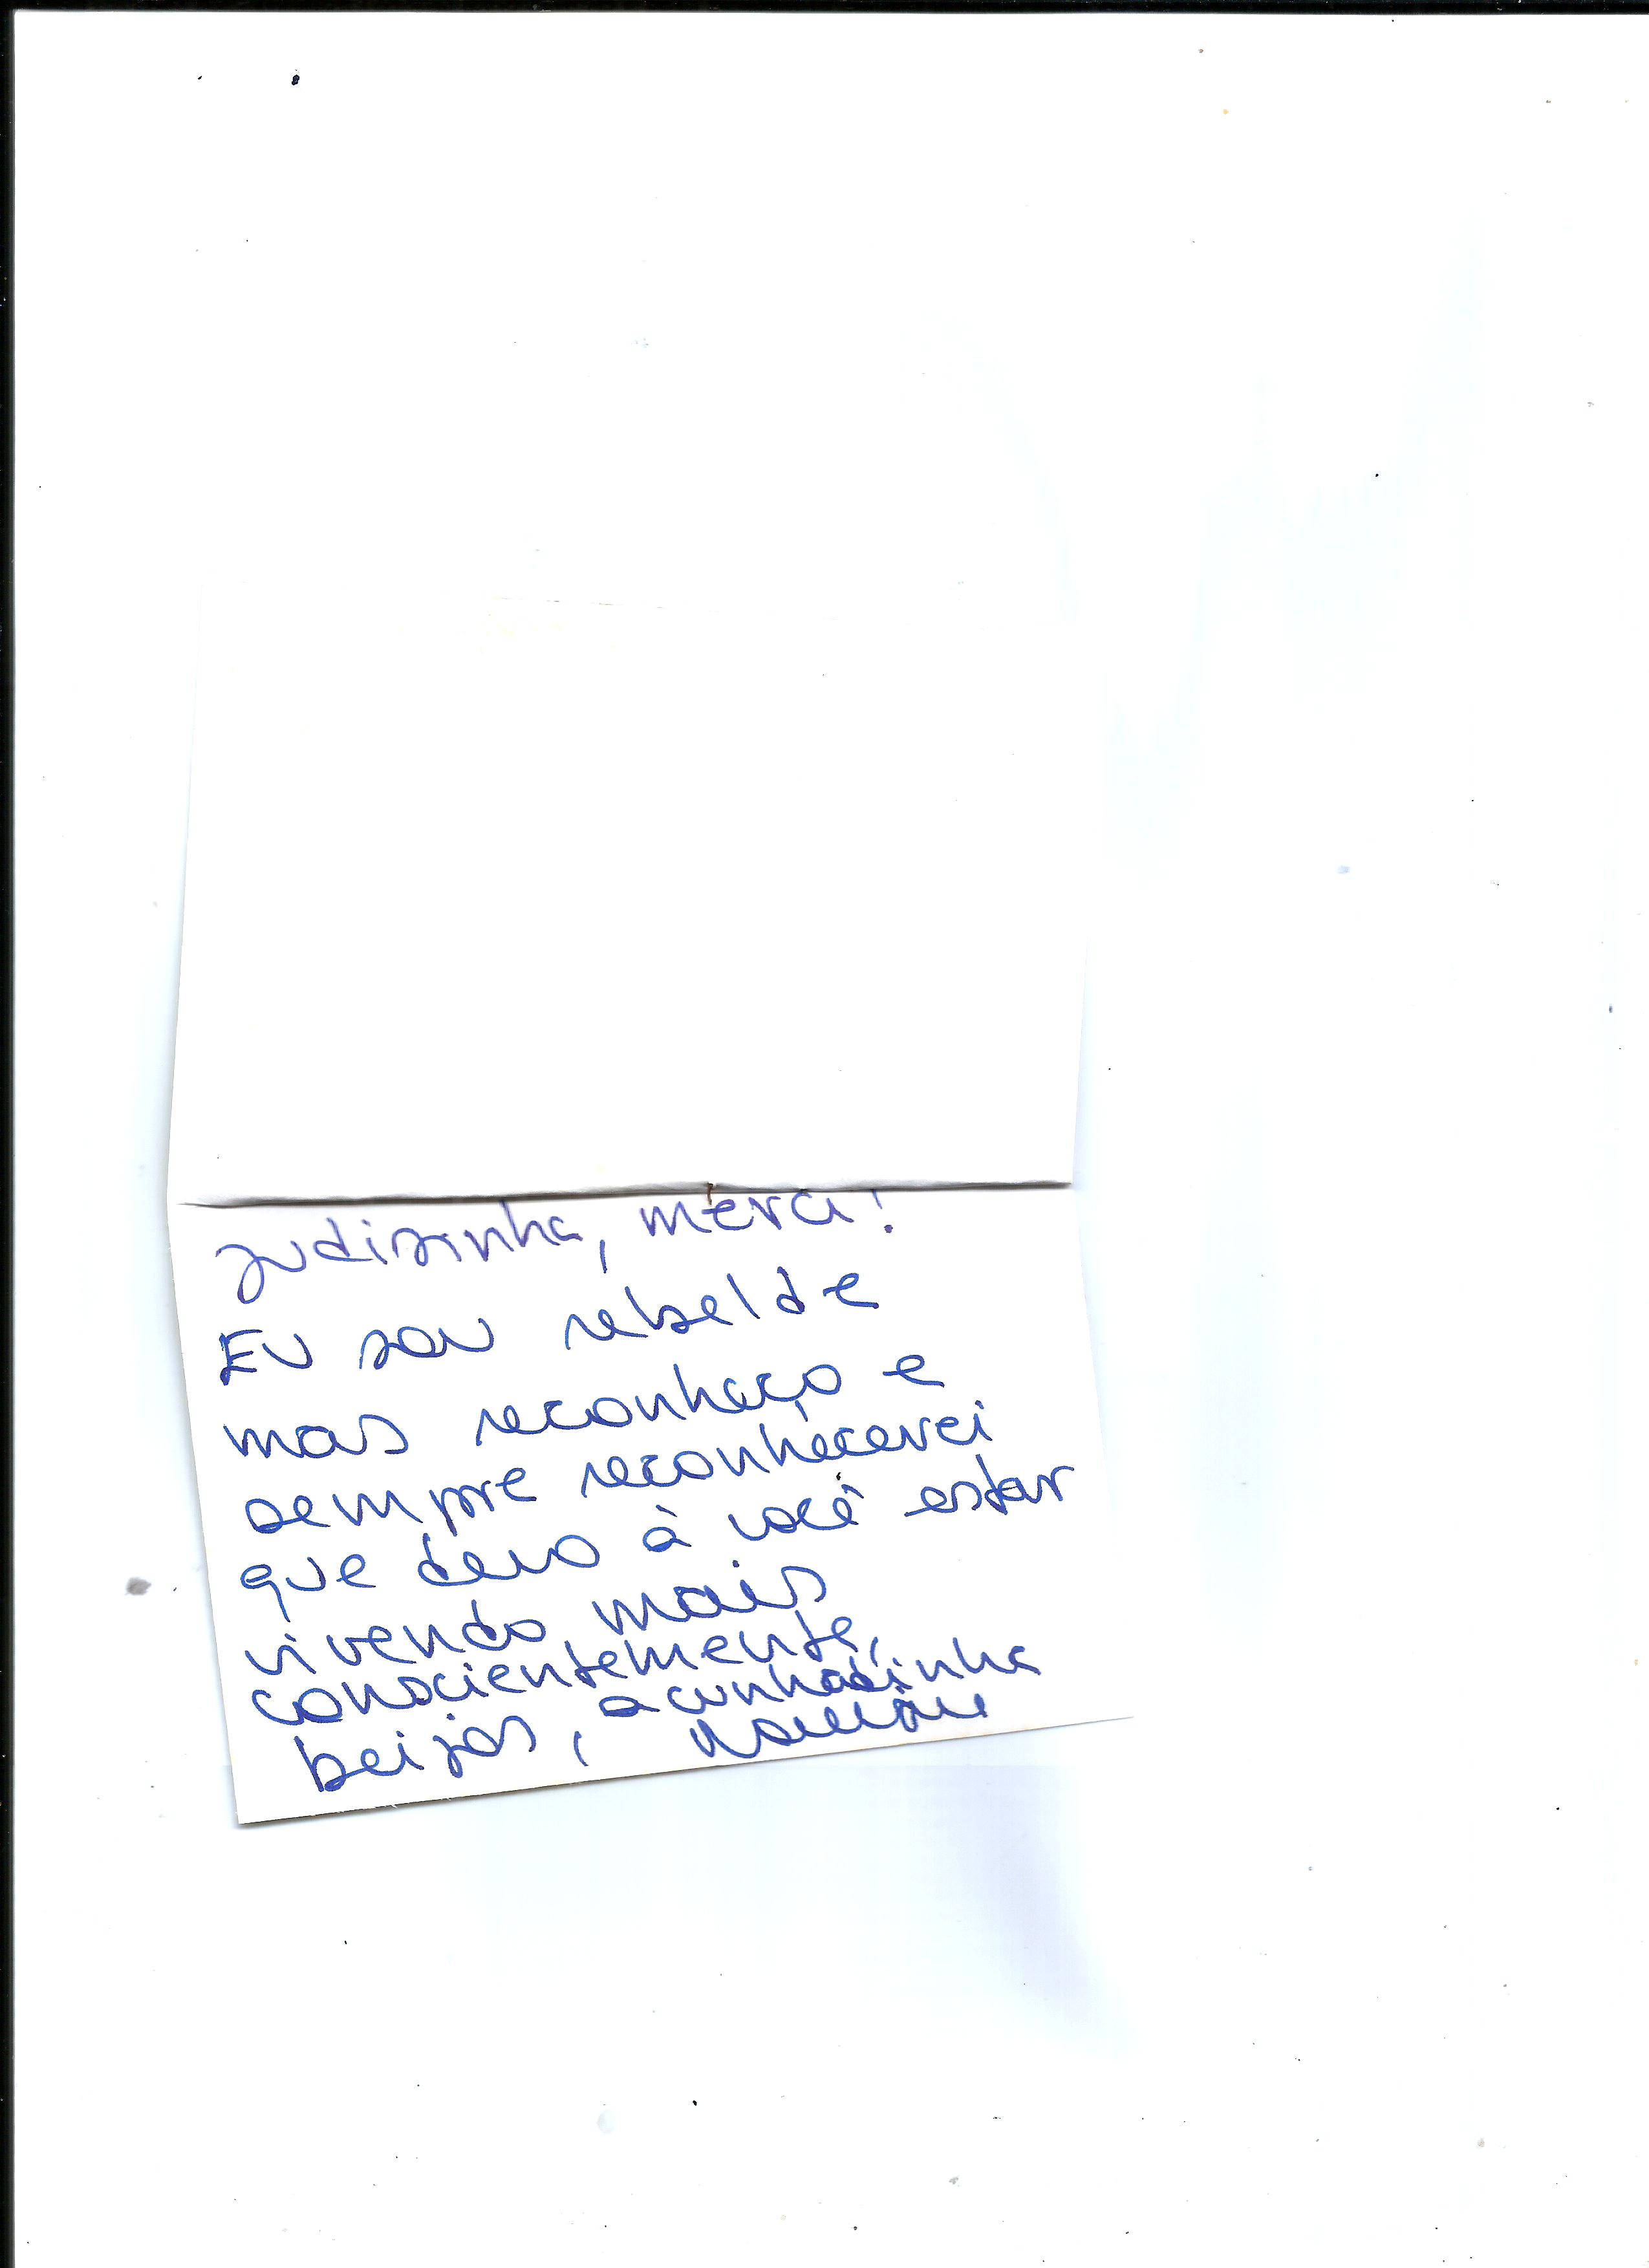 Judizinha, merci!
Eu sou rebelde
mas reconheço e
sempre reconhecerei
que devo à você estar
vivendo mais
conscientemente,
beijos, a cunhadinha